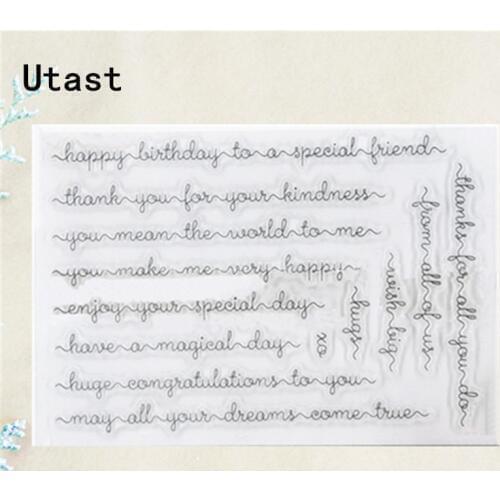 Utast
happy birthday to a special friend
thank you for your kindness
you mean the world to me
you make me very happy
enjoy your special day
have a magical day
huge congratulations to you
may all your dreams come true
xo
hugs
wish big
from all of us
thanks for all you do